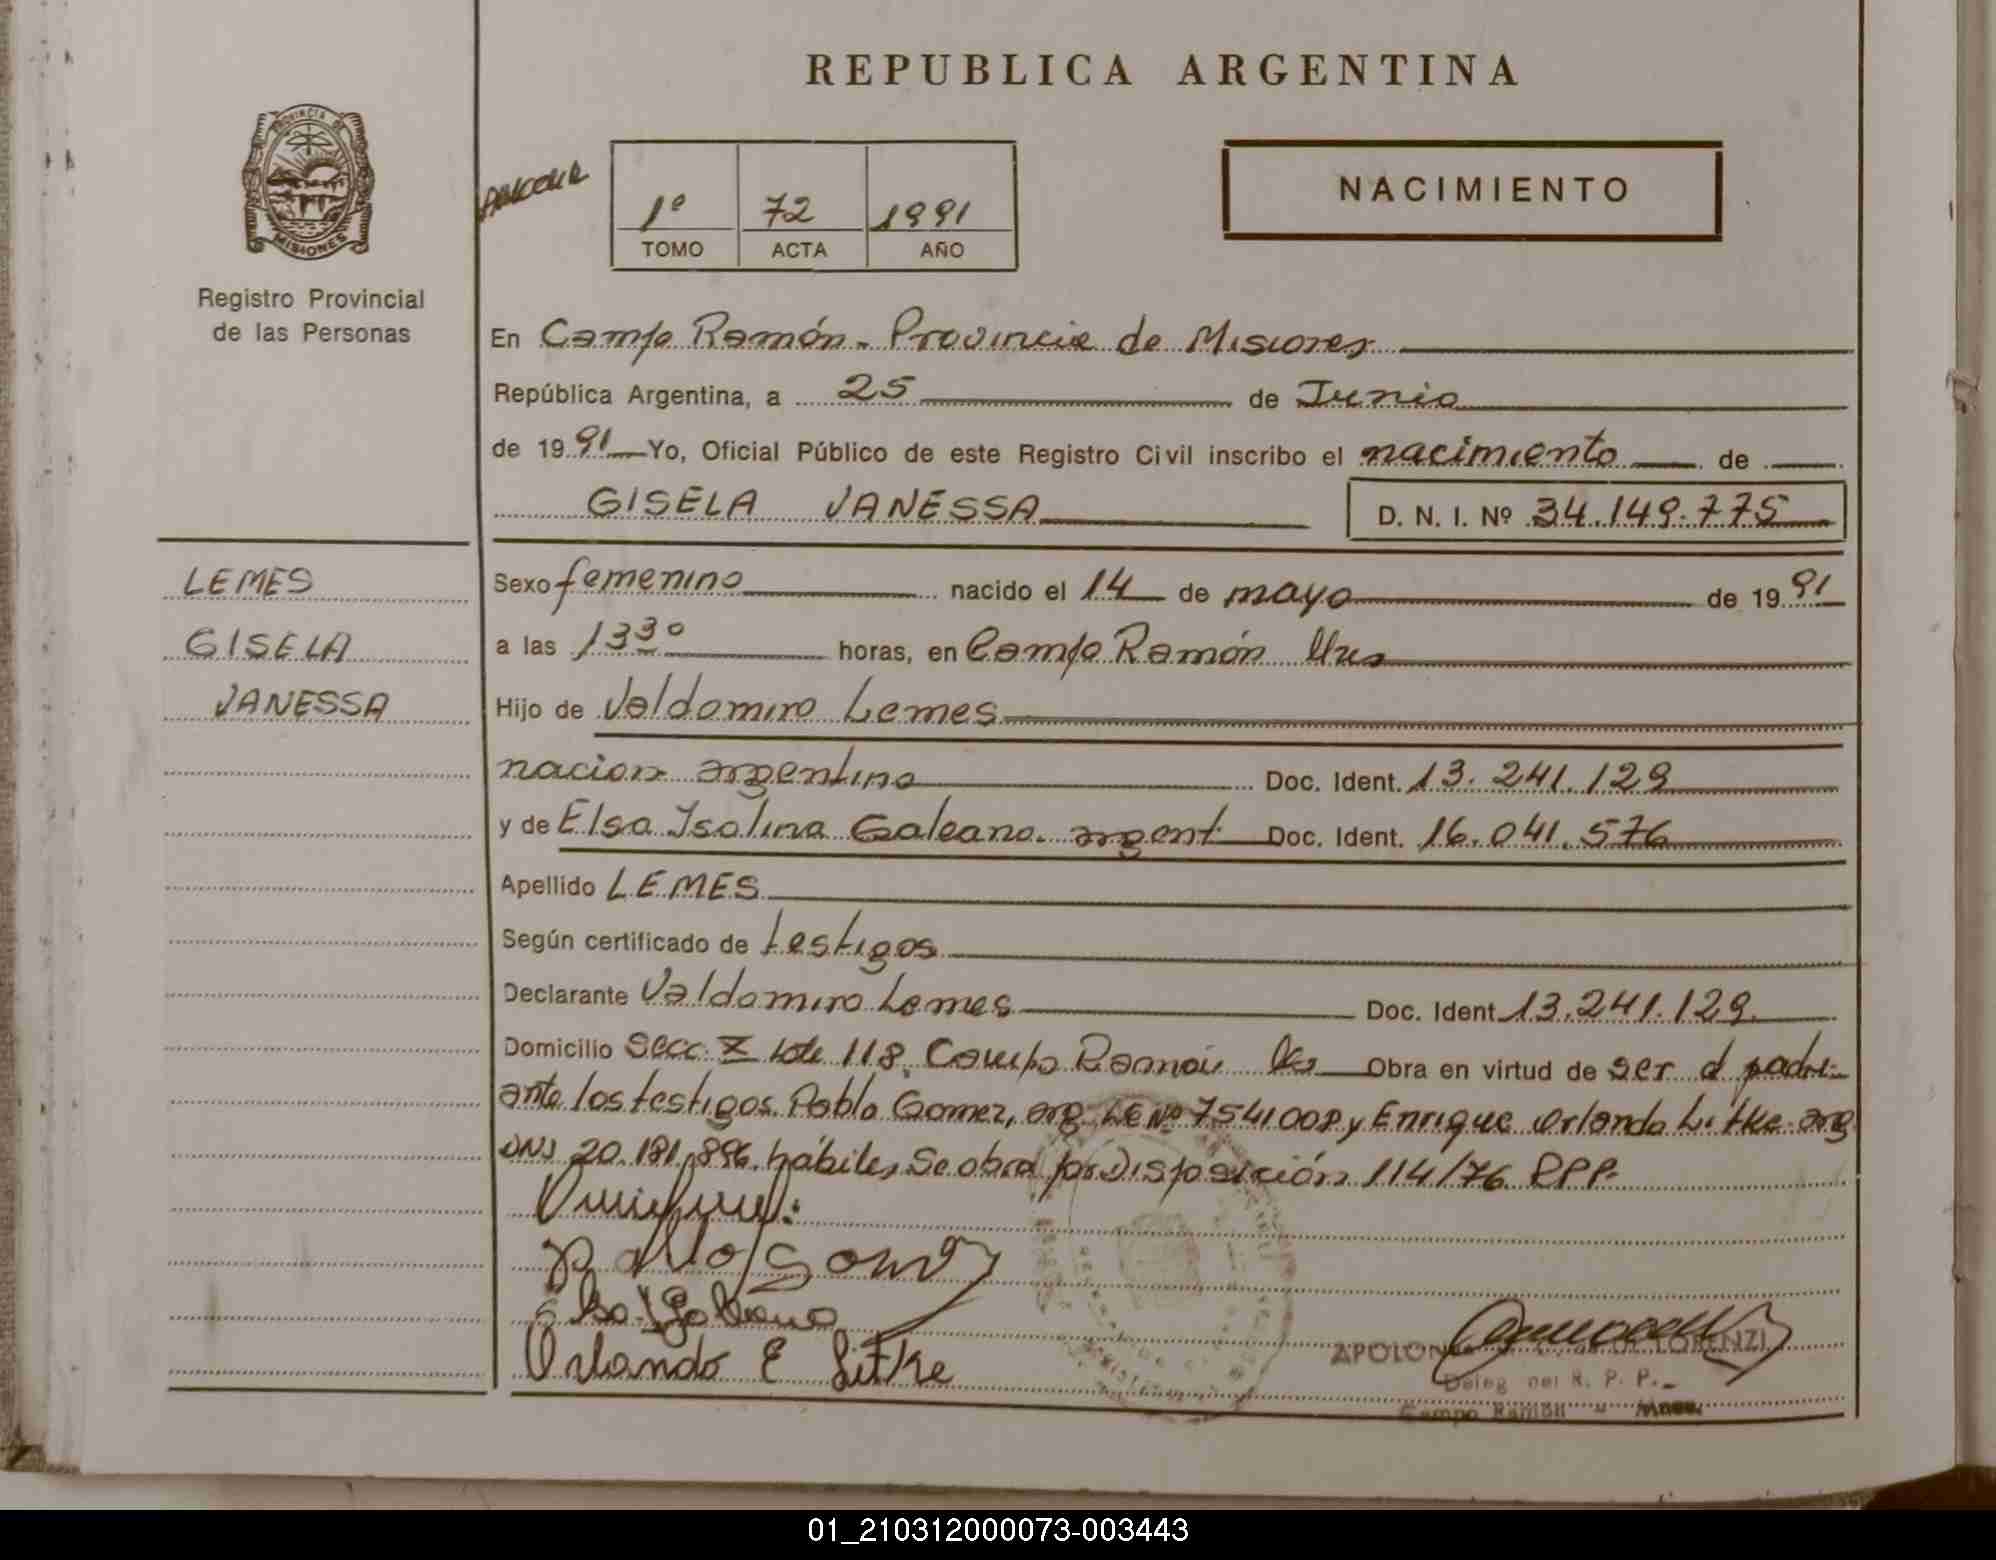 REPUBLICA ARGENTINA
PROVINCIA DE
MISIONES
Registro Provincial
de las Personas
1º 72 1991
TOMO ACTA AÑO
NACIMIENTO
En Campo Ramón - Provincia de Misiones
República Argentina, a 25 de Junio
de 1991 Yo, Oficial Público de este Registro Civil inscribo el nacimiento de
GISELA VANESSA D. N. I. Nº 34.149.775
LEMES
GISELA
VANESSA
Sexo femenino nacido el 14 de mayo de 1991
a las 13 30 horas, en Campo Ramón
Hijo de Valdomiro Lemes
nacion argentino Doc. Ident. 13.241.129
y de Elsa Isolina Galeano. argent Doc. Ident. 16.041.576
Apellido LEMES
Según certificado de testigos
Declarante Valdomiro Lemes Doc. Ident 13.241.129.
Domicilio Secc. Lote 118. Campo Ramón Obra en virtud de ser el padre
ante los testigos Pablo Gomez, arg. LE Nº 7541008 y Enrique Orlando Litke arg
DNI 20.181.896. hábiles Se obra por Disposición 114/76 RPP.
Pablo Gomez
Elsa I Galeano
Orlando E Litke
LORENZI
Deleg del R. P. P.
Campo Ramón - Mnes.
01_210312000073-003443